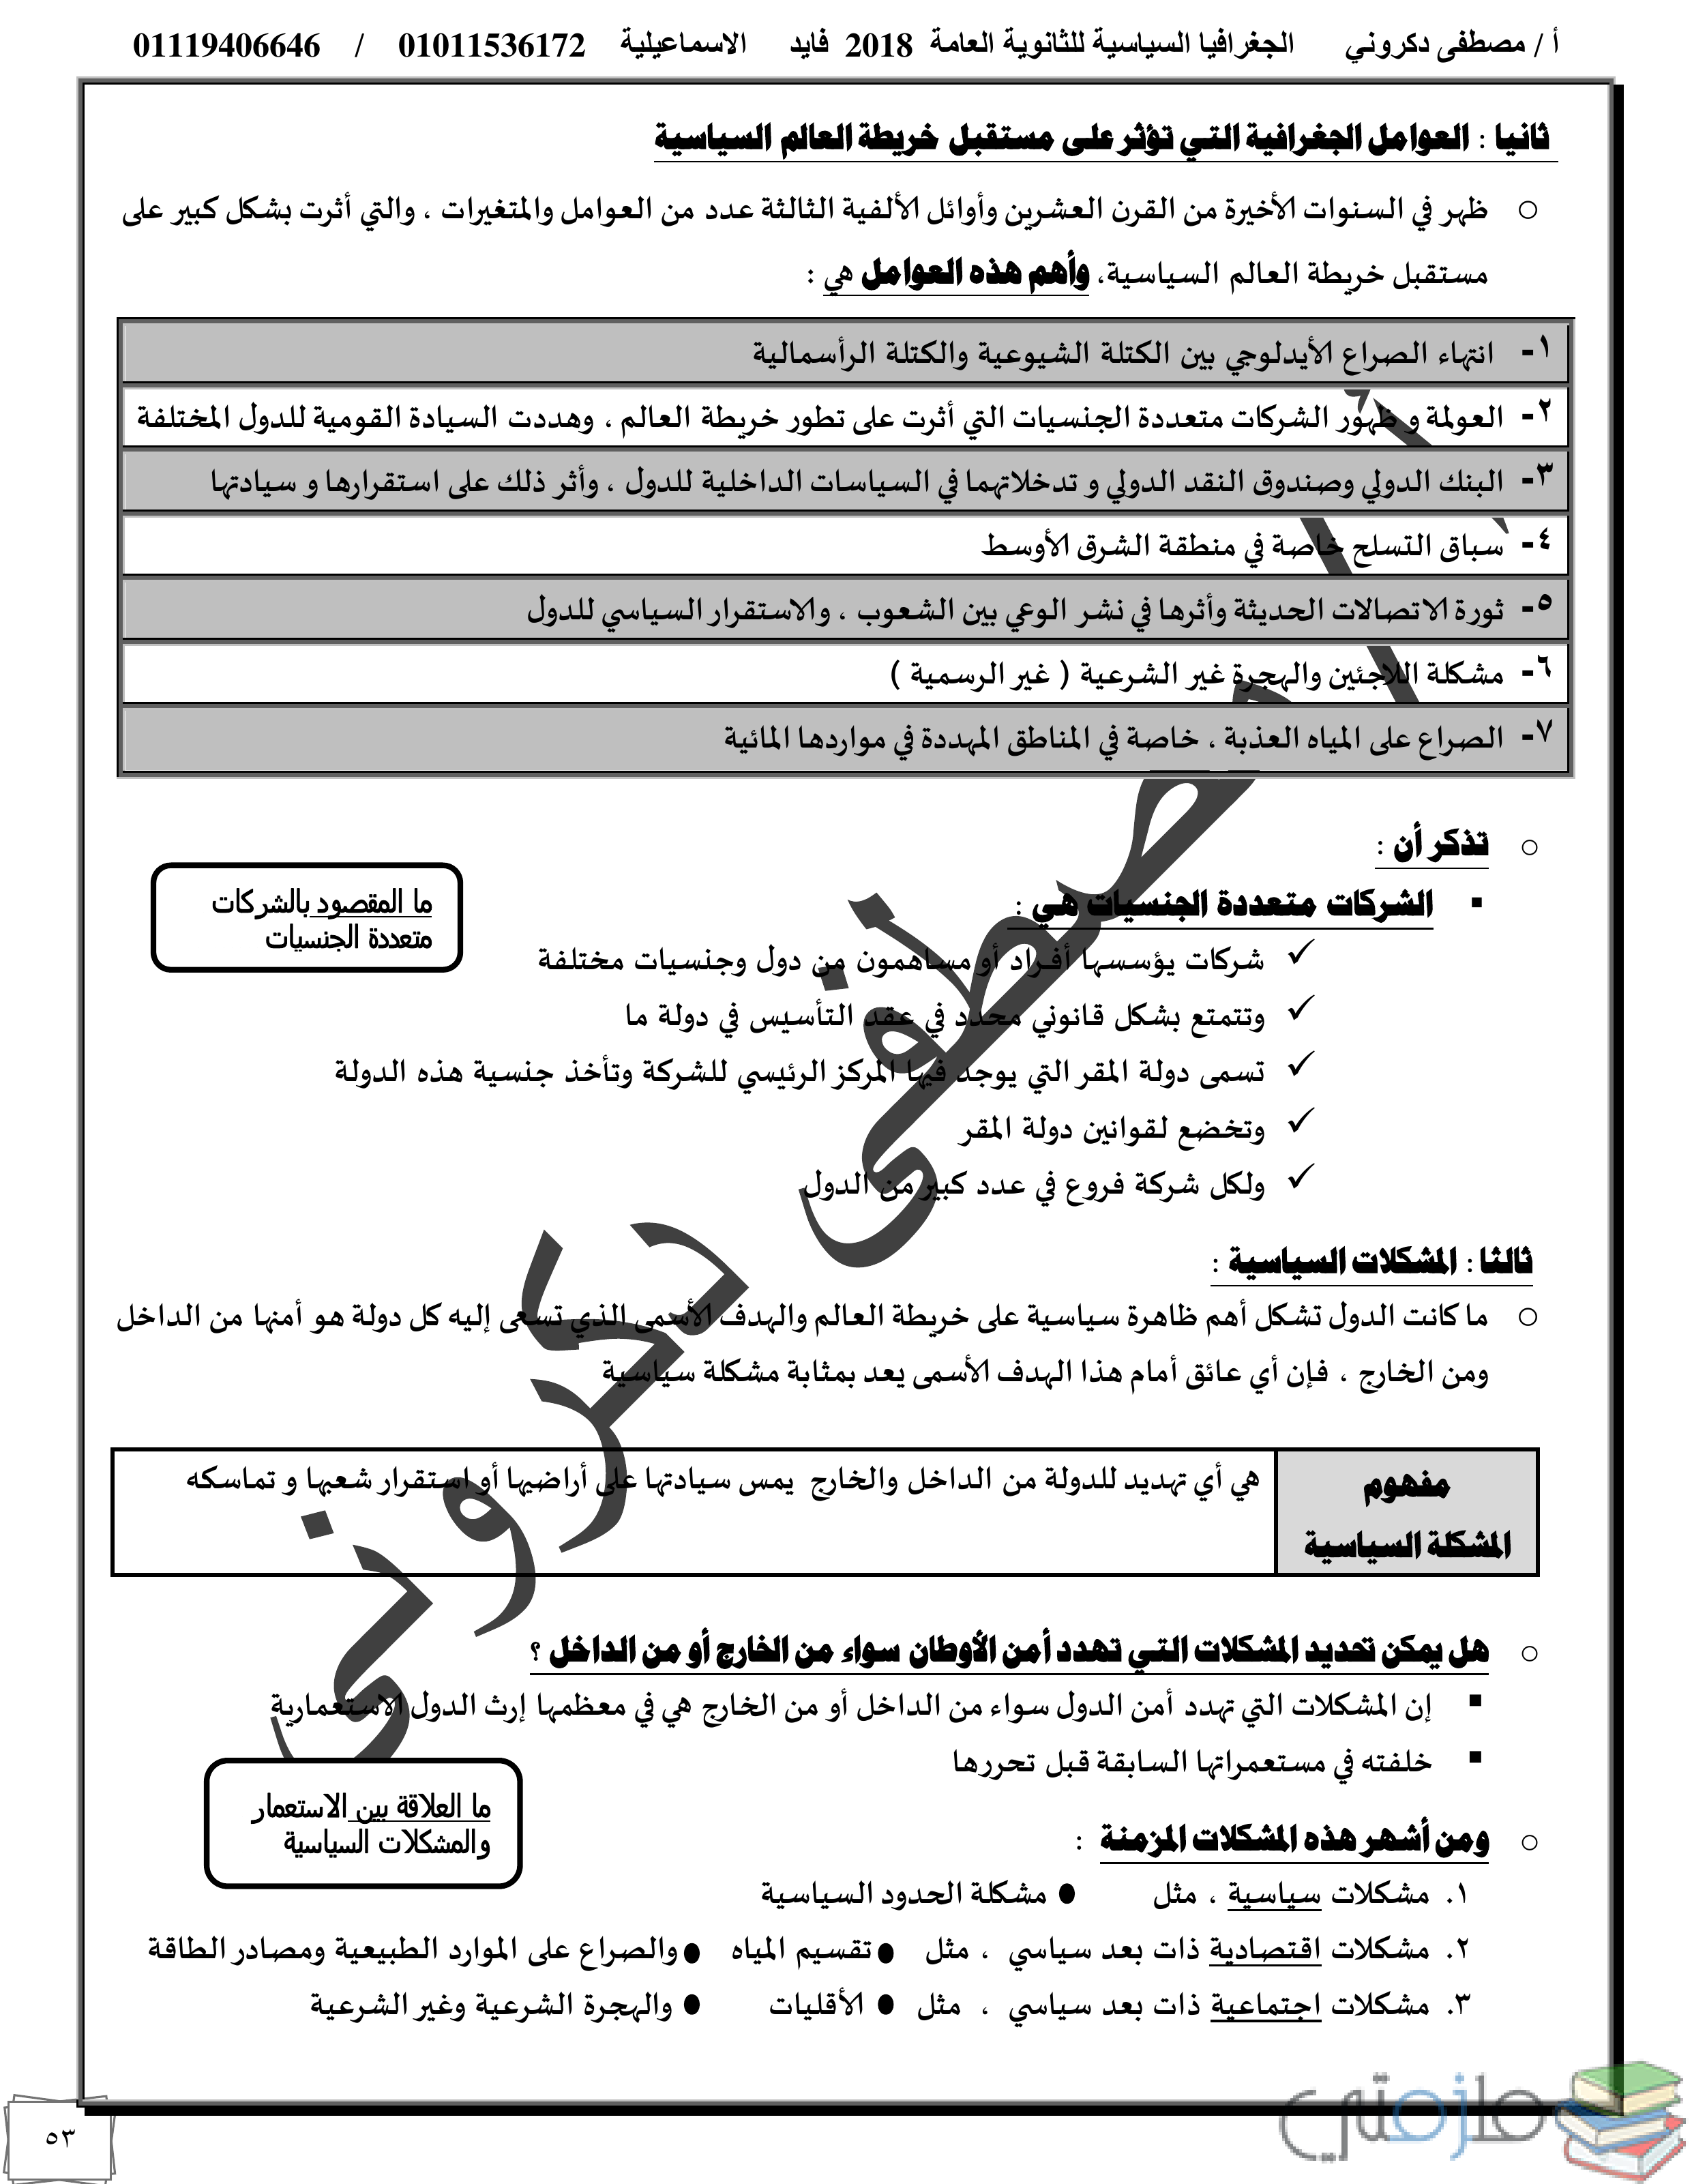 أ / مصطفى دكروني الجغرافيا السياسية للثانوية العامة 2018 فايد الاسماعيلية 01011536172 / 01119406646
ثانيا : العوامل الجغرافية التي تؤثر على مستقبل خريطة العالم السياسية
○ ظهر في السنوات الأخيرة من القرن العشرين وأوائل الألفية الثالثة عدد من العوامل والمتغيرات ، والتي أثرت بشكل كبير على
مستقبل خريطة العالم السياسية، وأهم هذه العوامل هي :
١- انتهاء الصراع الأيدلوجي بين الكتلة الشيوعية والكتلة الرأسمالية
٢- العولمة و ظهور الشركات متعددة الجنسيات التي أثرت على تطور خريطة العالم ، وهددت السيادة القومية للدول المختلفة
٣- البنك الدولي وصندوق النقد الدولي و تدخلاتهما في السياسات الداخلية للدول ، وأثر ذلك على استقرارها و سيادتها
٤- سباق التسلح خاصة في منطقة الشرق الأوسط
٥- ثورة الاتصالات الحديثة وأثرها في نشر الوعي بين الشعوب ، والاستقرار السياسي للدول
٦- مشكلة اللاجئين والهجرة غير الشرعية ( غير الرسمية )
٧- الصراع على المياه العذبة ، خاصة في المناطق المهددة في مواردها المائية
○ تذكر أن :
▪ الشركات متعددة الجنسيات هي :
ما المقصود بالشركات
متعددة الجنسيات
✓ شركات يؤسسها أفراد أو مساهمون من دول وجنسيات مختلفة
✓ وتتمتع بشكل قانوني محدد في عقد التأسيس في دولة ما
✓ تسمى دولة المقر التي يوجد فيها المركز الرئيسي للشركة وتأخذ جنسية هذه الدولة
✓ وتخضع لقوانين دولة المقر
✓ ولكل شركة فروع في عدد كبير من الدول
ثالثا : المشكلات السياسية :
○ ما كانت الدول تشكل أهم ظاهرة سياسية على خريطة العالم والهدف الأسمى الذي تسعى إليه كل دولة هو أمنها من الداخل
ومن الخارج ، فإن أي عائق أمام هذا الهدف الأسمى يعد بمثابة مشكلة سياسية
مفهوم
المشكلة السياسية
هي أي تهديد للدولة من الداخل والخارج يمس سيادتها على أراضيها أو استقرار شعبها و تماسكه
○ هل يمكن تحديد المشكلات التي تهدد أمن الأوطان سواء من الخارج أو من الداخل ؟
▪ إن المشكلات التي تهدد أمن الدول سواء من الداخل أو من الخارج هي في معظمها إرث الدول الاستعمارية
▪ خلفته في مستعمراتها السابقة قبل تحررها
ما العلاقة بين الاستعمار
والمشكلات السياسية
○ ومن أشهر هذه المشكلات المزمنة :
١. مشكلات سياسية ، مثل ● مشكلة الحدود السياسية
٢. مشكلات اقتصادية ذات بعد سياسي ، مثل ● تقسيم المياه ● والصراع على الموارد الطبيعية ومصادر الطاقة
٣. مشكلات اجتماعية ذات بعد سياسي ، مثل ● الأقليات ● والهجرة الشرعية وغير الشرعية
أ / مصطفى دكروني
ملزمتي
٥٣